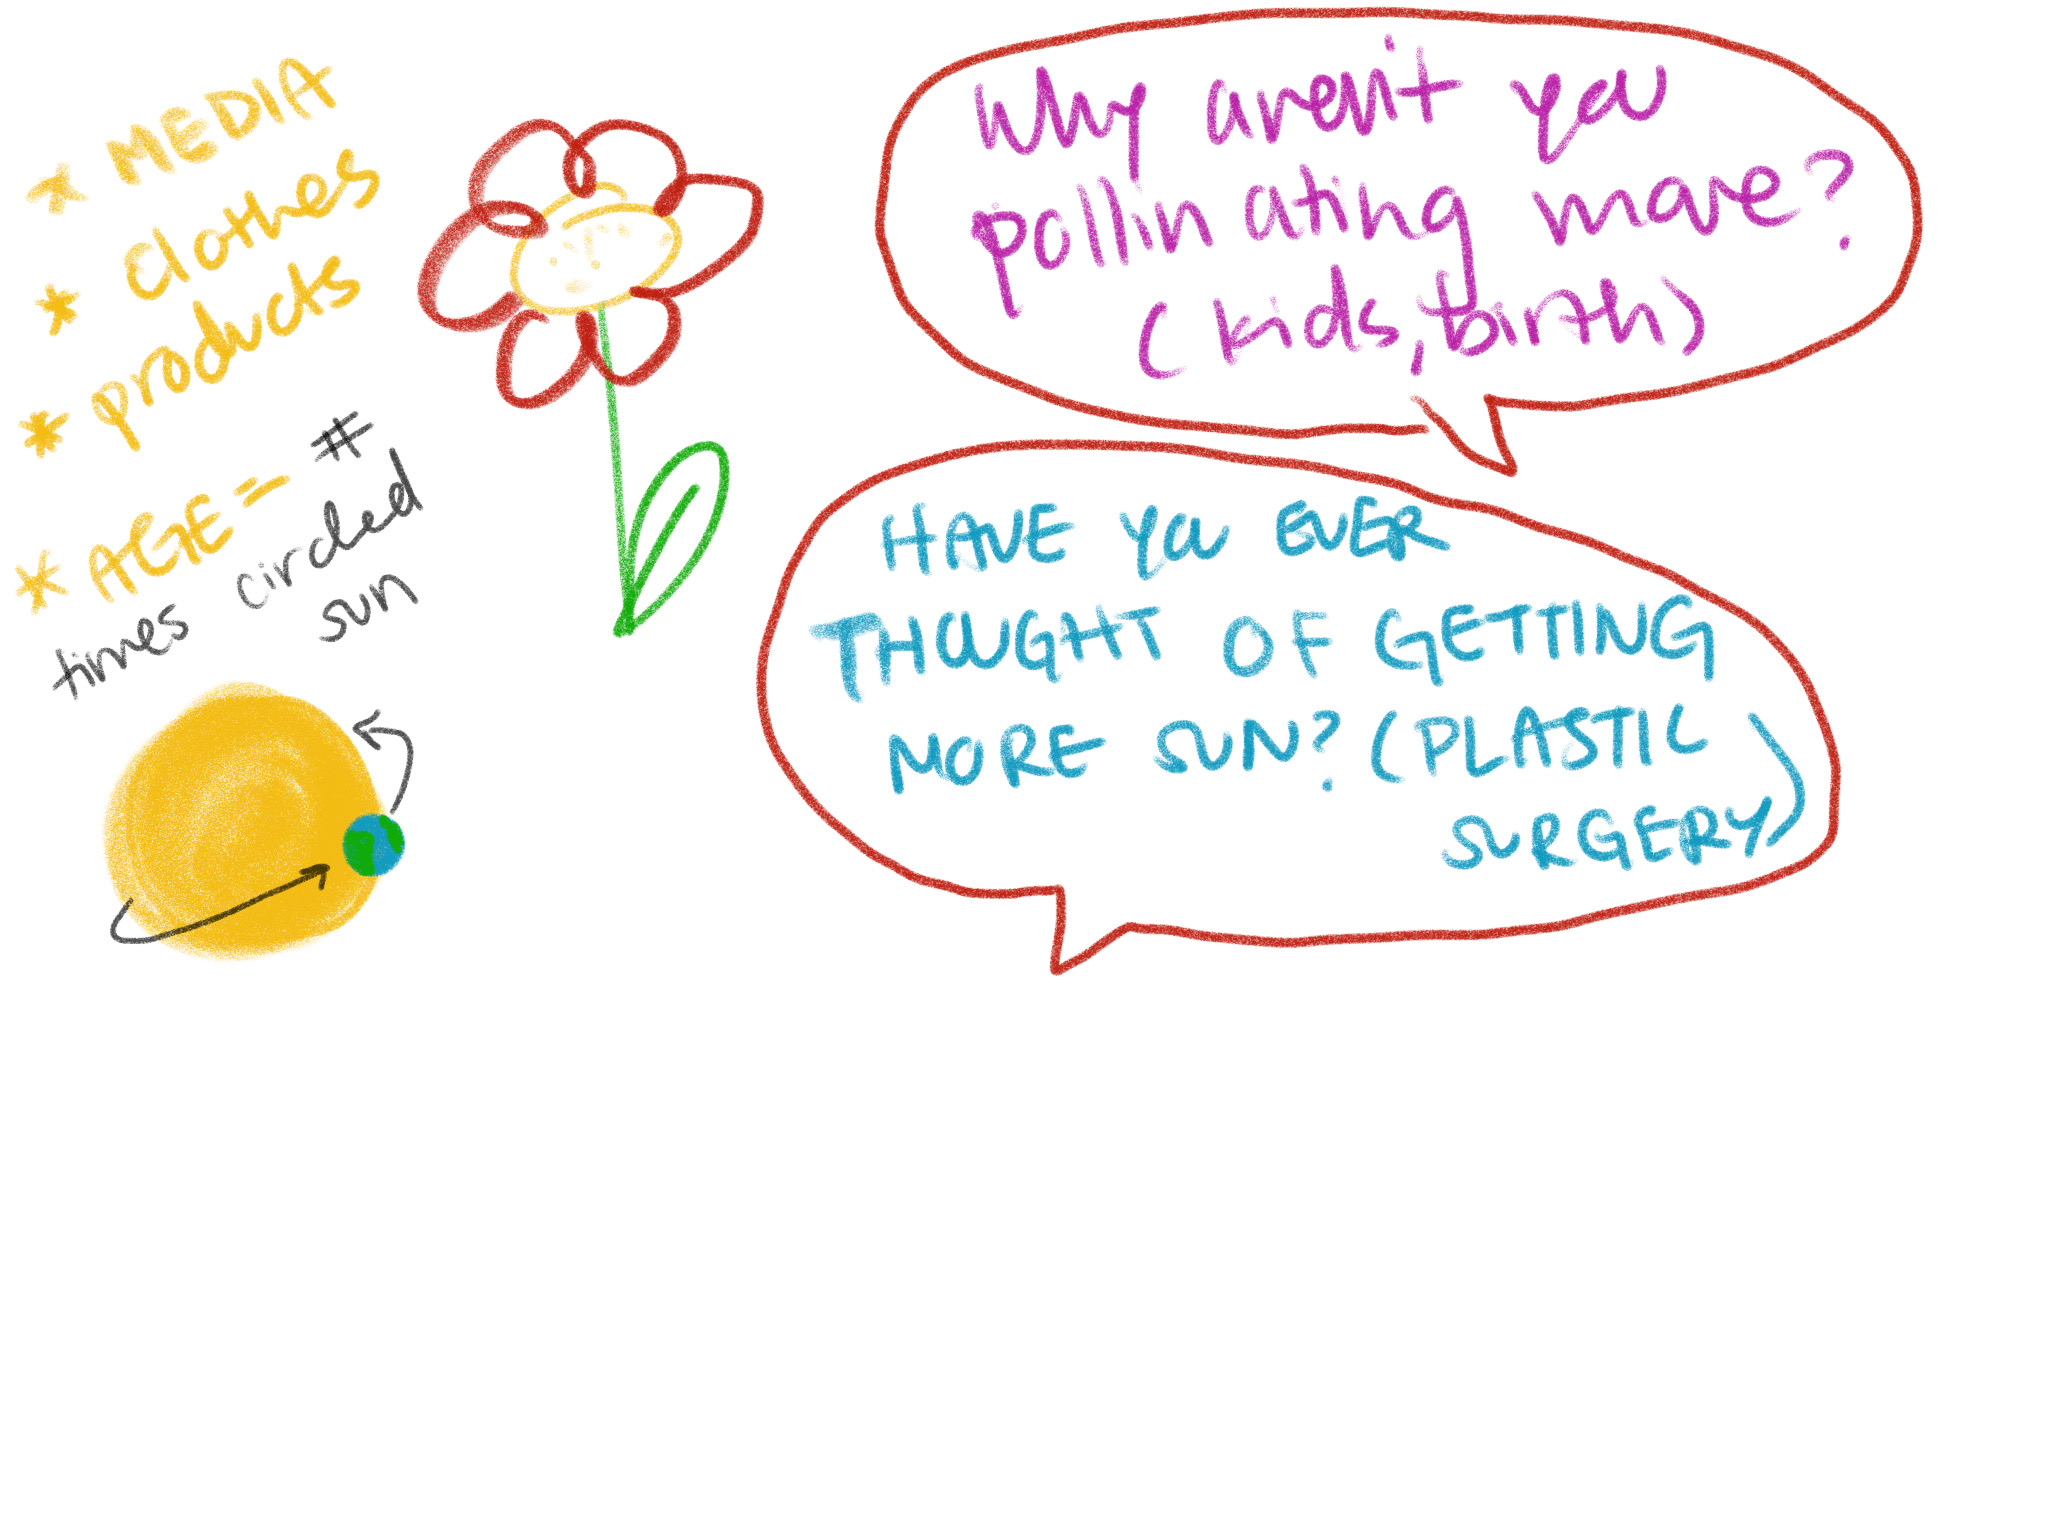 * MEDIA
* clothes
* products
* AGE = #
times circled
sun
Why aren't you
pollinating more?
(kids, birth)
HAVE YOU EVER
THOUGHT OF GETTING
MORE SUN? (PLASTIC
SURGERY)